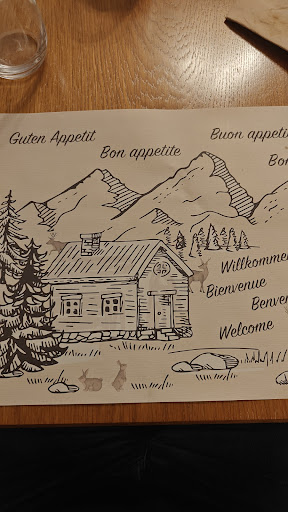 Guten Appetit
Buon appetit
Bon appetite
Bo
Willkommen
Bienvenue
Benven
Welcome